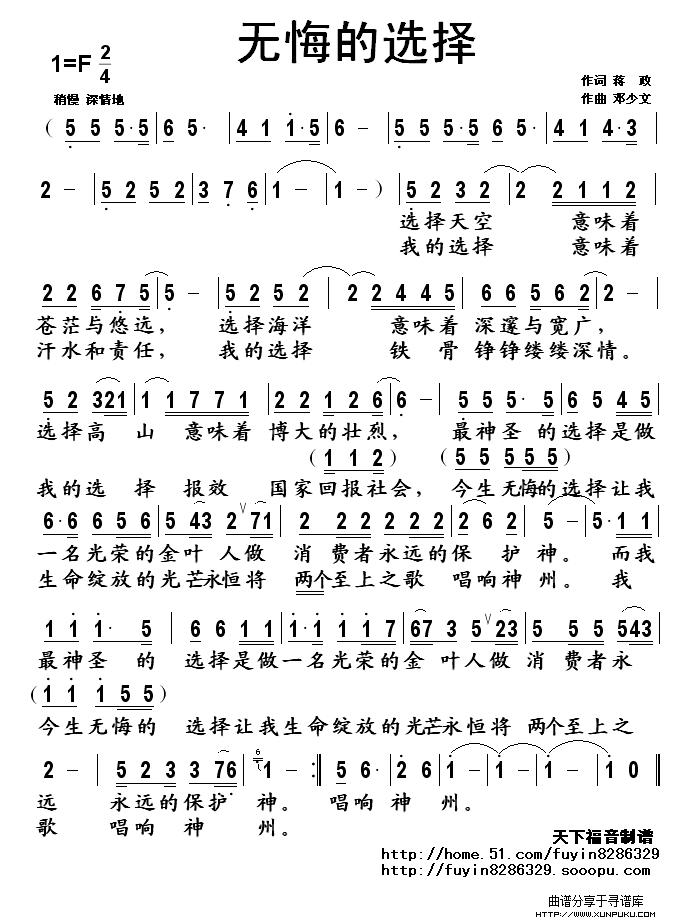 无悔的选择
1=F 2/4
作词 蒋 政
稍慢 深情地
作曲 邓少文
( 5 5 5·5 | 6 5· | 4 1 1·5 | 6 - | 5 5 5·5 | 6 5· | 4 1 4·3 |
2 - | 5 2 5 2 | 3 7 6 | 1 - | 1 - ) | 5 2 3 2 | 2 2 1 1 2 |
选择天空 意味着
我的选择 意味着
2 2 6 7 5 | 5 - | 5 2 5 2 | 2 2 4 4 5 | 6 6 5 6 2 |
苍茫与悠远， 选择海洋 意味着 深邃与宽广，
汗水和责任， 我的选择 铁 骨 铮铮缕缕深情。
5 2 321 | 1 1 7 7 1 | 2 2 1 2 6 | 6 - | 5 5 5· 5 | 6 5 4 5 |
选择高 山 意味着 博大的壮烈， 最神圣 的选择是做
( 1 1 2 ) ( 5 5 5 5 5 )
我的选 择 报效 国家回报社会，今生无悔的选择让我
6·6 6 5 6 | 5 43 2 V 71 | 2 2 2 2 2 | 2 6 2 | 5 - | 5· 1 1 |
一名光荣的金叶 人做 消 费者永远的保 护 神。 而我
生命绽放的光芒永恒将 两个至上之歌 唱响神 州。 我
1 1 1· 5 | 6 6 1 1 | 1·1 1 1 7 | 67 3 5 V 23 | 5 5 5 543 |
最神圣 的 选择是做一名光荣的金 叶人做 消 费者永
( 1 1 1 5 5 )
今生无悔的 选择让我生命绽放的光芒永恒将 两个至上之
2 - | 5 2 3 3 76 | 6 1 - :‖ 5 6· | 2 6 | 1 - | 1 - | 1 0 ‖
远 永远的保护 神。 唱响 神 州。
歌 唱响 神 州。
天下福音制谱
http://home.51.com/fuyin8286329
http://fuyin8286329.sooopu.com
曲谱分享于寻谱库
WWW.XUNPUKU.COM